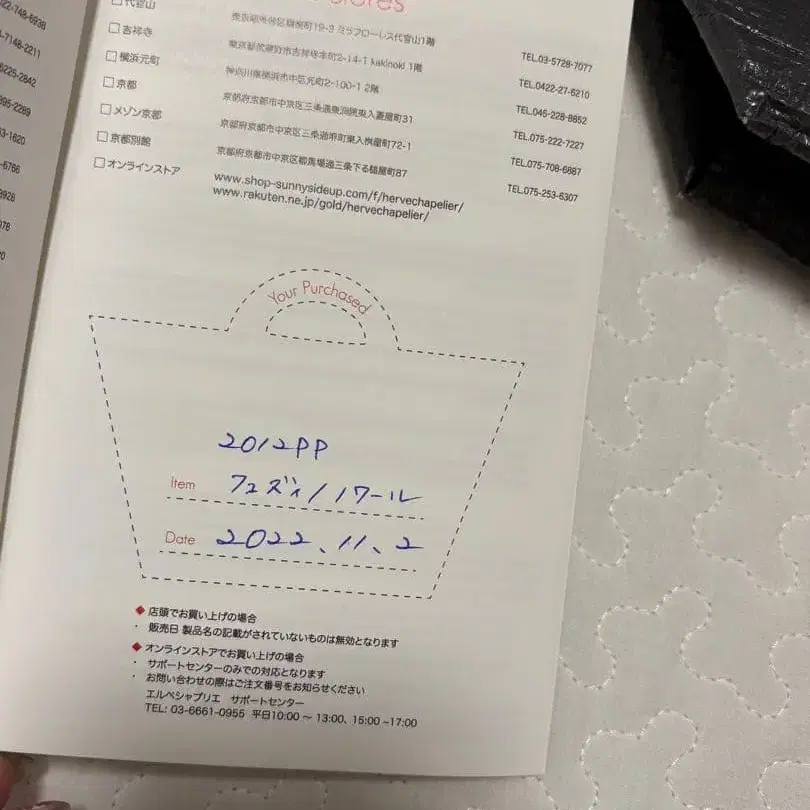 22-748-6938
-7148-2211
6225-2842
895-2289
53-1620
-6766
3928
078
0
ores
代官山 東京都渋谷区猿楽町19-3 ミラフローレス代官山1階 TEL.03-5728-7077
吉祥寺 東京都武蔵野市吉祥寺本町2-14-1 kakinoki 1階 TEL.0422-27-6210
横浜元町 神奈川県横浜市中区元町2-100-1 2階 TEL.045-228-8852
京都 京都府京都市中京区三条通烏丸東入菱屋町31 TEL.075-222-7227
メゾン京都 京都府京都市中京区三条通堺町東入桝屋町72-1 TEL.075-708-6887
京都別館 京都府京都市中京区麩屋町通三条下る槌屋町87 TEL.075-253-6307
オンラインストア www.shop-sunnysideup.com/f/hervechapelier/
www.rakuten.ne.jp/gold/hervechapelier/
Your Purchased
2012PP
Item フュズィ/ノワール
Date 2022、11、2
◆ 店頭でお買い上げの場合
・ 販売日 製品名の記載がされていないものは無効となります
◆ オンラインストアでお買い上げの場合
・ サポートセンターのみでの対応となります
・ お問い合わせの際はご注文番号をお知らせください
エルベシャプリエ サポートセンター
TEL: 03-6661-0955 平日10:00 ~ 13:00、15:00 ~17:00